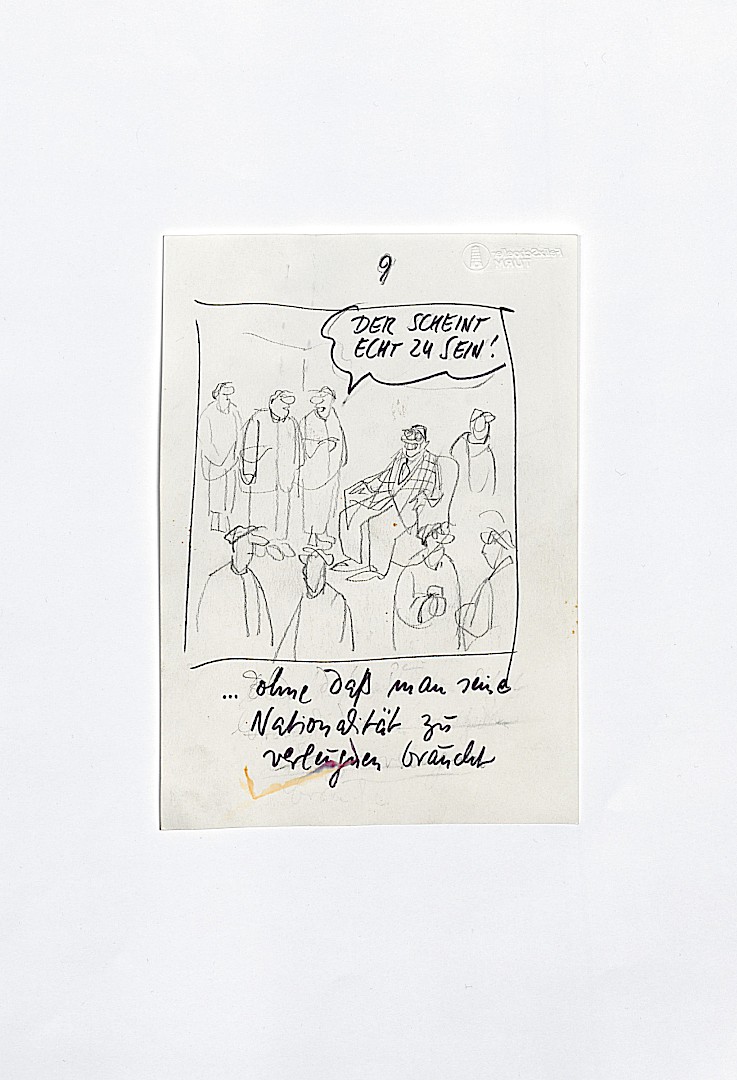 9
DER SCHEINT
ECHT ZU SEIN!
... ohne daß man seine
Nationalität zu
verleugnen braucht